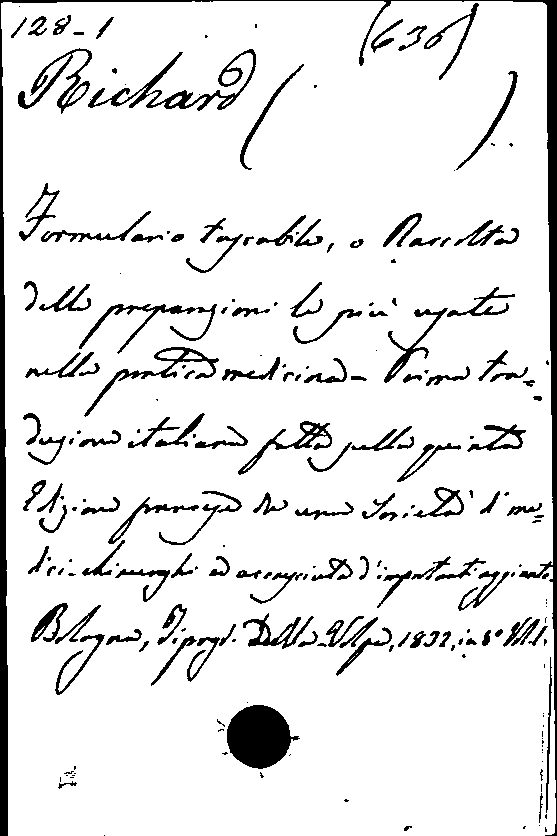 128-1
(636)
Richard ( )
Formulario tascabile, o Raccolta
delle preparazioni le più usate
nella pratica medicina - Prima tra=
duzione italiana fatta sulla quinta
Edizione francese da una Società di me=
dici-chirurghi ed accresciuta d'importanti aggiunte.
Bologna, Tipogr. Della Volpe, 1832, in 8° Vol. 1.